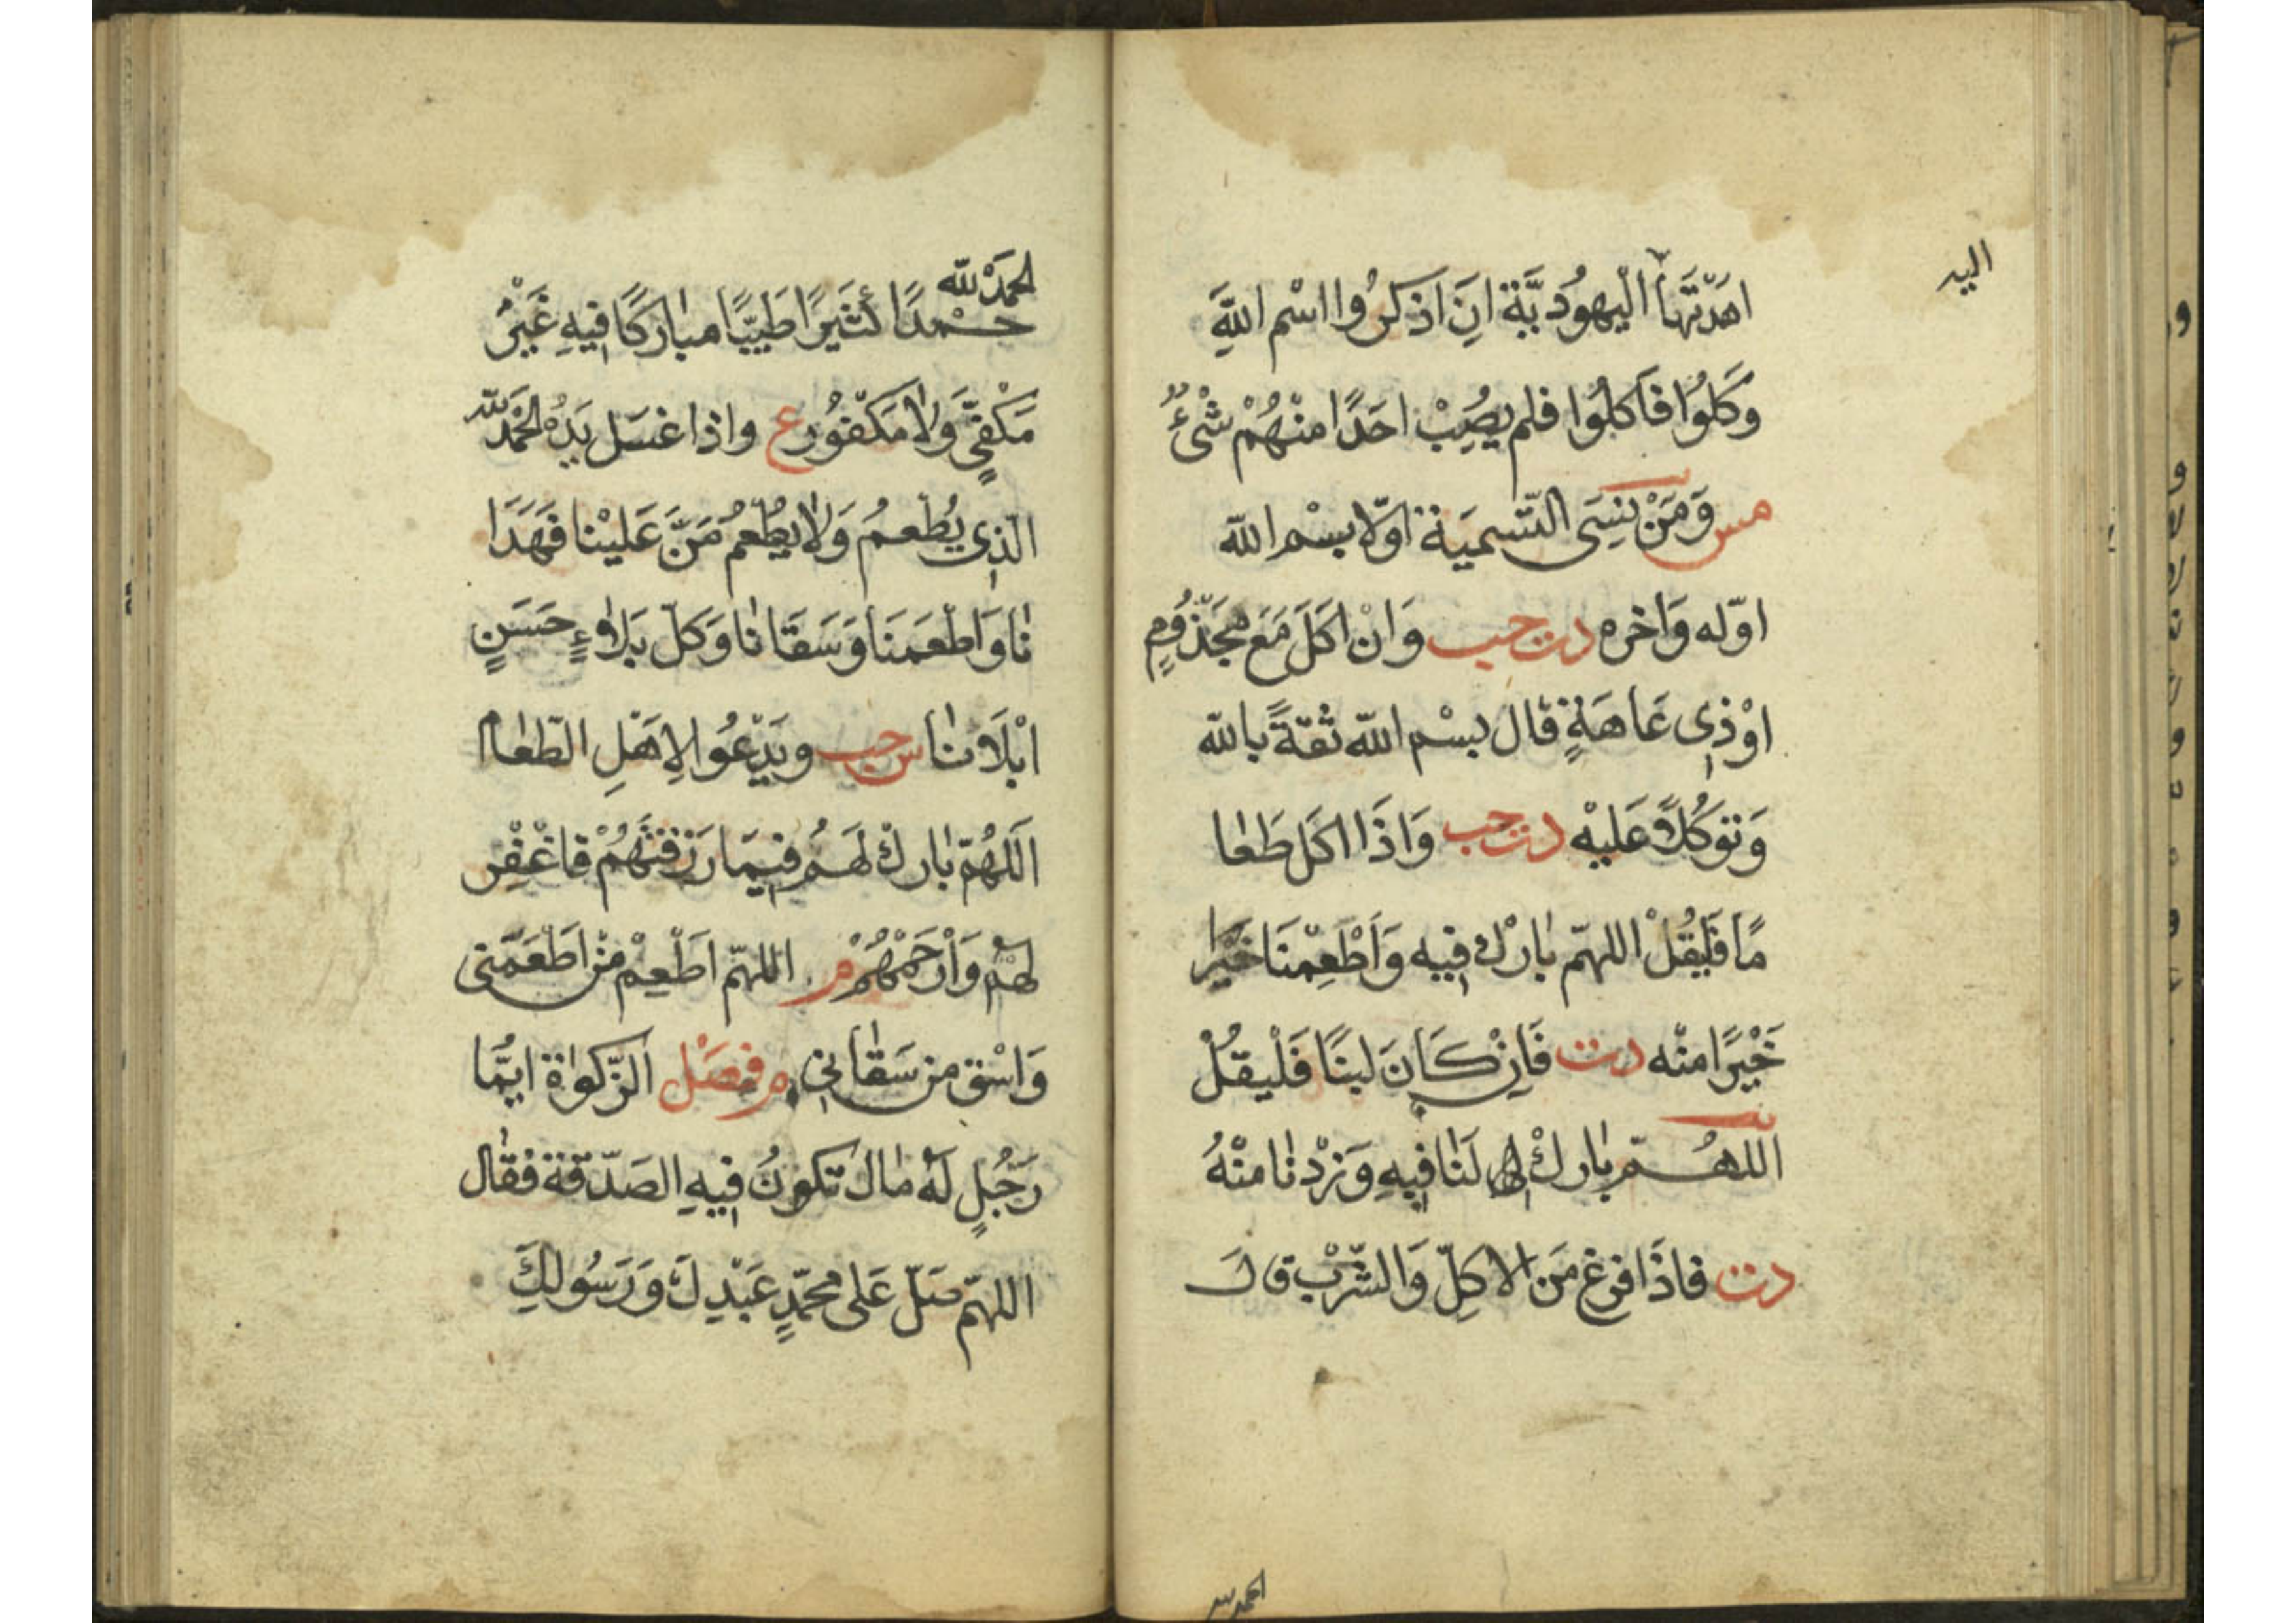 اليه
اهَدَتْهَا الْيهُودِيَّة انِ اذكرُوا اسْم اللّهِ
وَكلُوا فَاكلُوا فلم يصُِبْ احَدًا منْهُمْ شْئٌ
مس وَمَنْ نِسَى التّسميَة اوّلا بسْم اللّه
اوّله وَاخره دت حب وَانْ اكلَ مَعَ مجَذُومٍ
اوْ ذِى عَاهَةٍ قال بسْم اللّه ثقةً باللّه
وَتوَكُلاً عَليْه دت حب وَاذَا اكل طَعَا
مًا فَليقُلْ اللهمّ بَاركْ فِيه وَاَطْعِمْنَا خَيْرًا
خَيْرًا منْه دت فَاِنْ كَانَ لبنًا فَلْيقُلْ
اللهُمّ بَاركْ لَنَا فِيهِ وَزِدْنَا منْهُ
دت فاذَا فرغ مَن الاكلِ وَالشّرْب قال
الحمد لله
الحمَدْ للّه
حَمْدًا كَثيَرًا طَيّبًا مبَاركًا فِيهِ غَيْرُ
مَكْفِىٍّ وَلا مَكَفُورٍ ع واذا غسَل يَدَهُ الحَمَدُ للّه
الّذِى يُطْعمُ وَلا يطُعمُ مَنَّ عَليْنا فَهَدَا
نَا وَاطْعَمَنَا وَسَقَانَا وَكلّ بَلاءٍ حَسَنٍ
ابْلَانَا س حب ويَدْعُوا لِاهَلِ الطّعَام
اَللهُمّ بَاركْ لَهُم فِيمَا رَزَقتَهُمْ فَاغْفِر
لهْم وَارْحَمْهُمْ م اللهمّ اطَعِمْ منْ اطَعَمَنى
وَاسْق من سَقَانِى م فصَل الزّكوَاة ايّمَا
رَجُلٍ لَهْ مَال تكونُ فِيهِ الصَدّقَة فقَال
اللهمّ صَلّ عَلى محمّدٍ عَبْدِكَ وَرَسُولِكَ